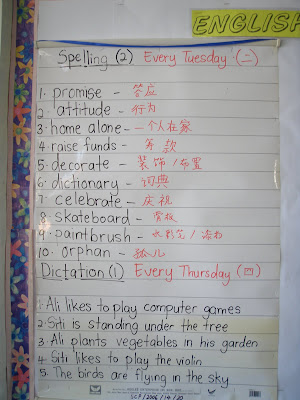 ENGLISH
Spelling (2) Every Tuesday (二)
1. promise - 答应
2. attitude - 行为
3. home alone - 一个人在家
4. raise funds - 筹款
5. decorate - 装饰/布置
6. dictionary - 词典
7. celebrate - 庆祝
8. skateboard - 滑板
9. paintbrush - 水彩笔/
10. orphan - 孤儿
Dictation (1) Every Thursday (四)
1. Ali likes to play computer games
2. Siti is standing under the tree
3. Ali plants vegetables in his garden
4. Siti likes to play the violin
5. The birds are flying in the sky